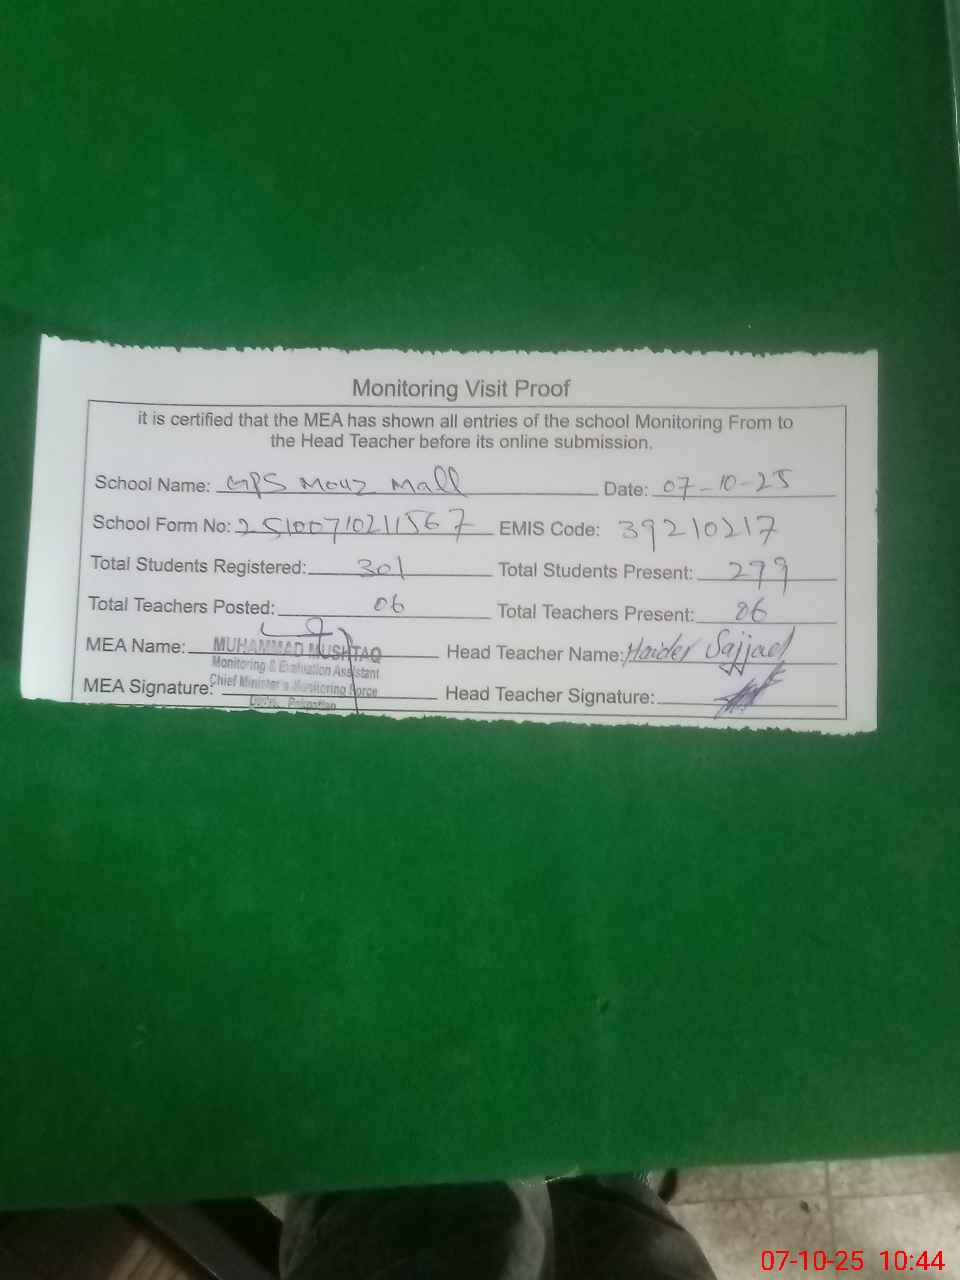 Monitoring Visit Proof
it is certified that the MEA has shown all entries of the school Monitoring From to
the Head Teacher before its online submission.
School Name: GPS Mouz Mall Date: 07-10-25
School Form No: 25100710211567 EMIS Code: 39210217
Total Students Registered: 301 Total Students Present: 279
Total Teachers Posted: 06 Total Teachers Present: 06
MEA Name: MUHAMMAD MUSHTAQ Head Teacher Name: Haider Sajjad
Monitoring & Evaluation Assistant
Chief Minister's Monitoring Force
MEA Signature: Head Teacher Signature:
Pakpattan
07-10-25 10:44